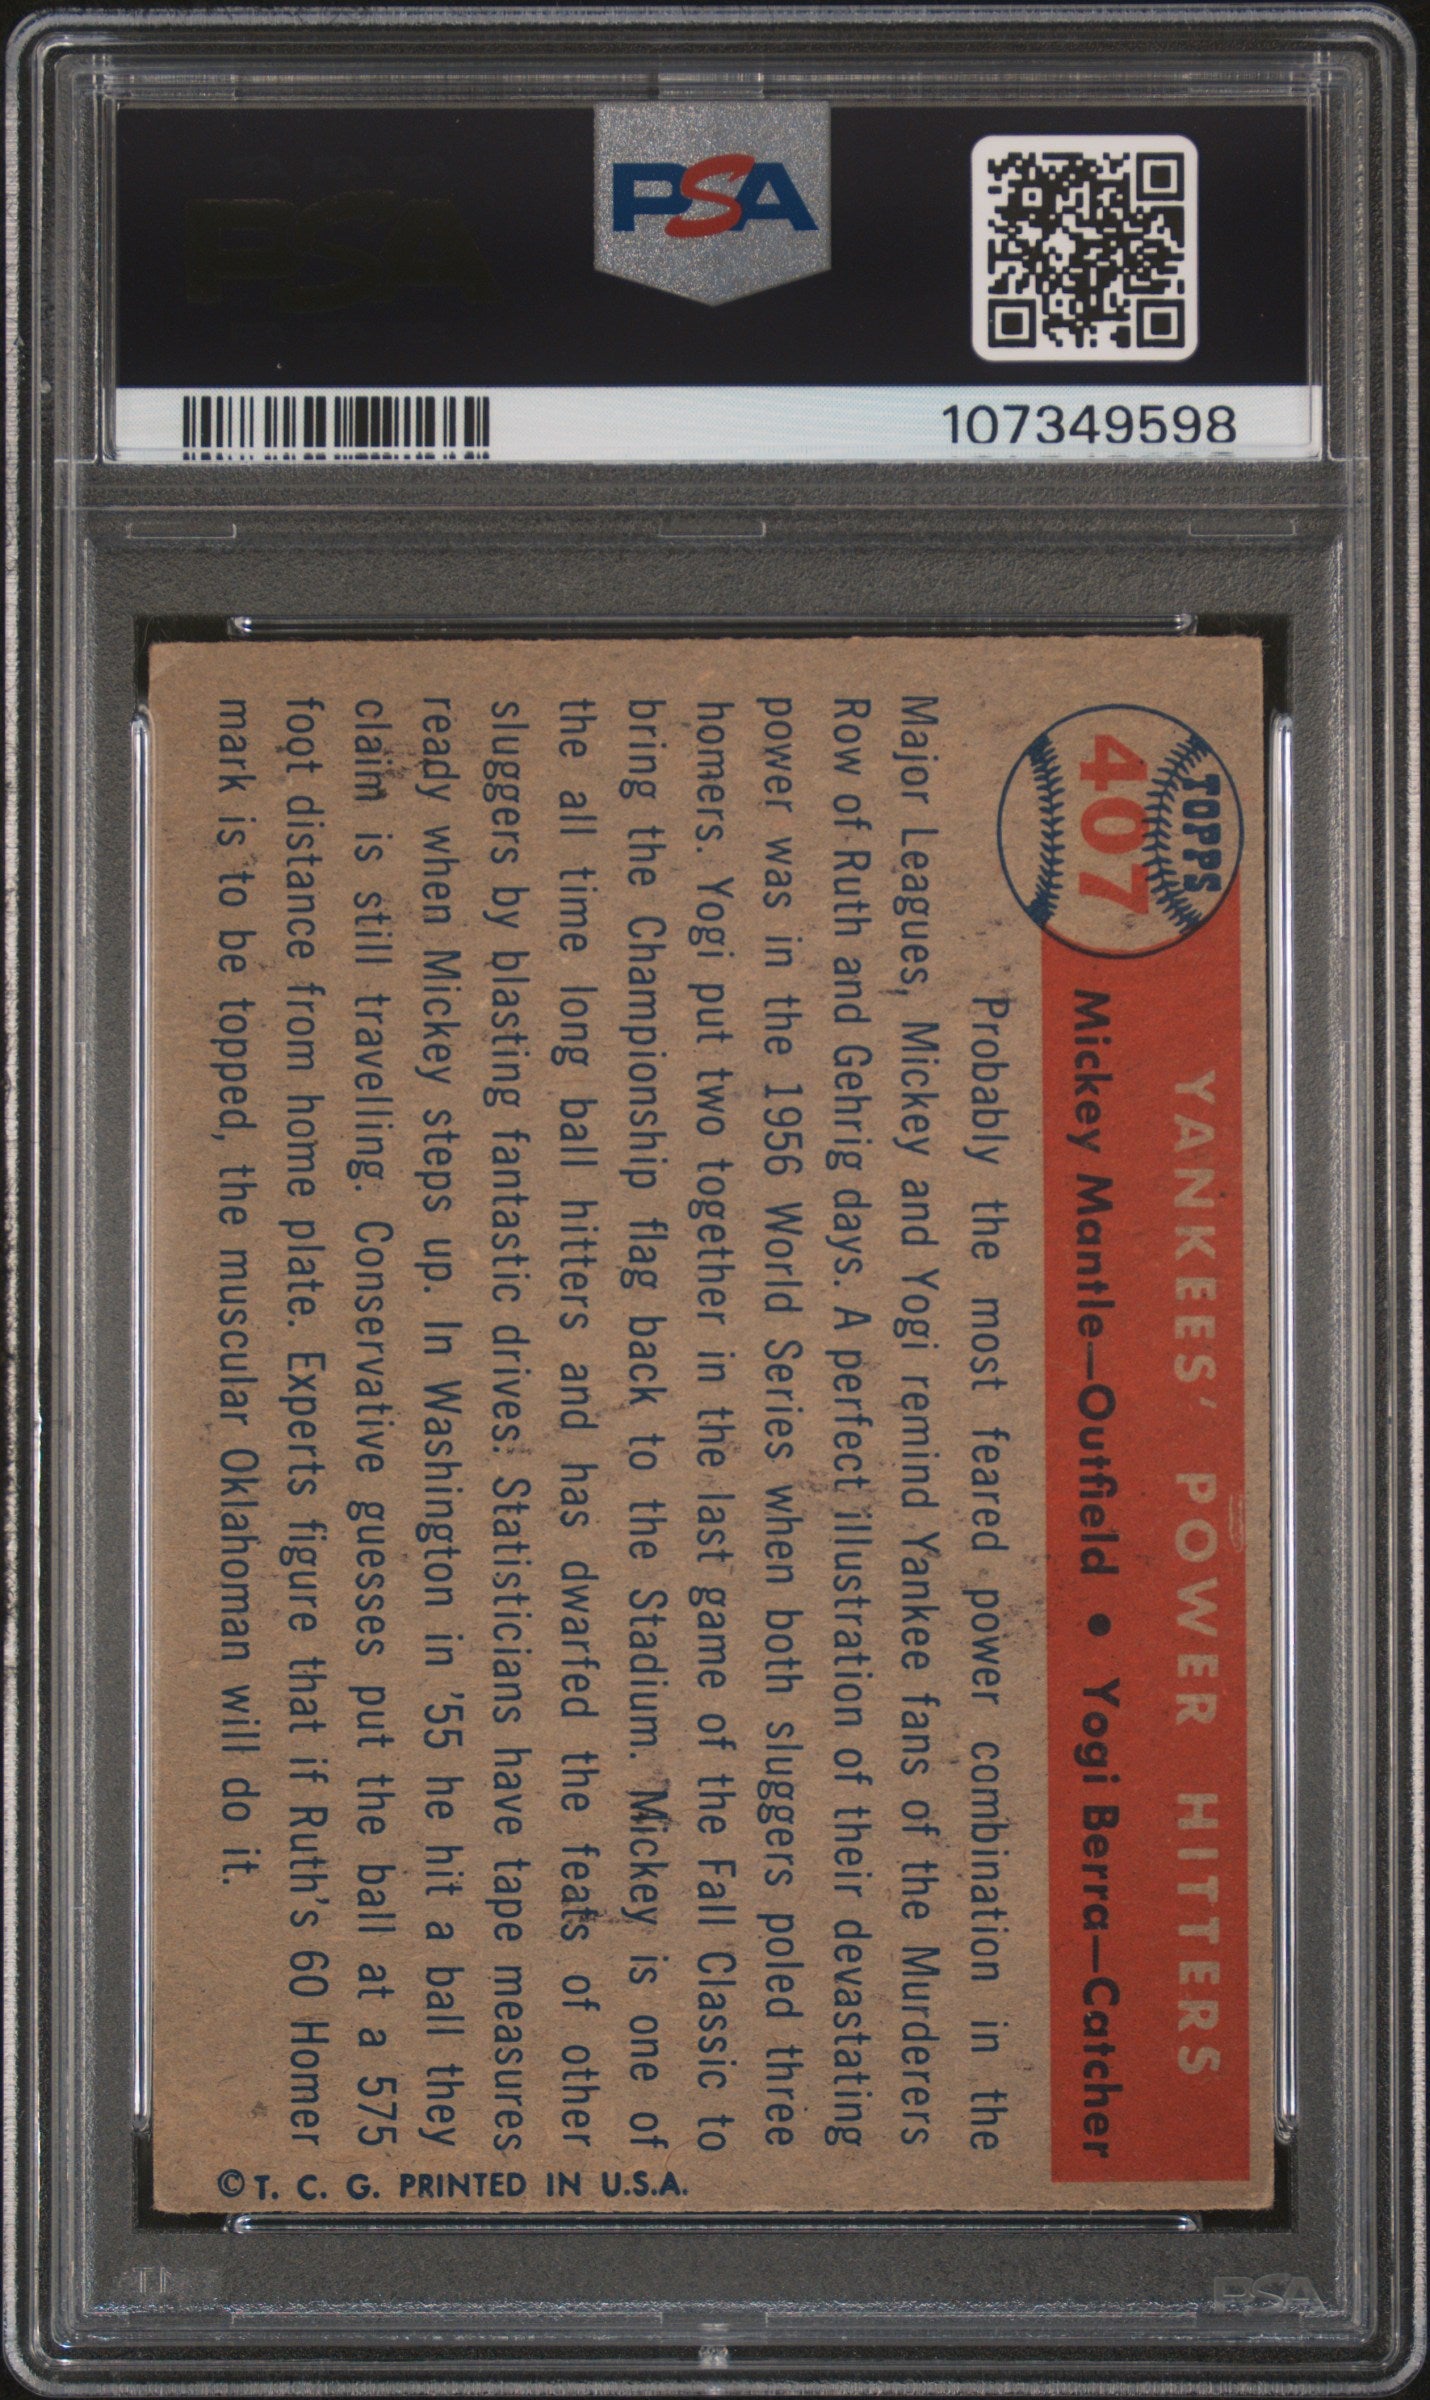 PSA
107349598
TOPPS
407
YANKEES' POWER HITTERS
Mickey Mantle—Outfield • Yogi Berra—Catcher
Probably the most feared power combination in the
Major Leagues, Mickey and Yogi remind Yankee fans of the Murderers
Row of Ruth and Gehrig days. A perfect illustration of their devastating
power was in the 1956 World Series when both sluggers poled three
homers. Yogi put two together in the last game of the Fall Classic to
bring the Championship flag back to the Stadium. Mickey is one of
the all time long ball hitters and has dwarfed the feats of other
sluggers by blasting fantastic drives. Statisticians have tape measures
ready when Mickey steps up. In Washington in '55 he hit a ball they
claim is still travelling. Conservative guesses put the ball at a 575
foot distance from home plate. Experts figure that if Ruth's 60 Homer
mark is to be topped, the muscular Oklahoman will do it.
© T. C. G. PRINTED IN U.S.A.
PSA